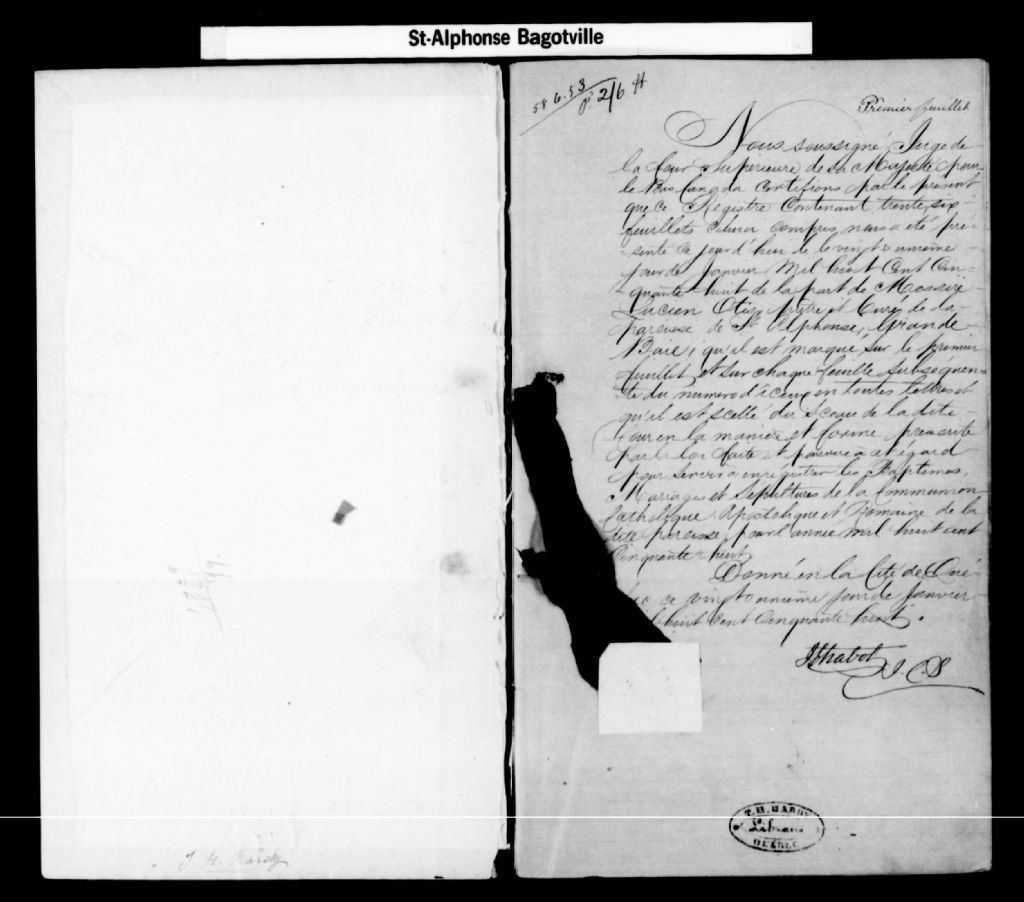 St-Alphonse Bagotville
58 6.53
p 216 H
Premier feuillet
Nous soussigné, Juge de
la Cour Supérieure de Sa Majesté pour
le Bas Canada Certifions par le présent
que ce Régistre Contenant trente six
feuillets celui-ci compris, nous a été pré-
senté ce jour d'hui le vingt onnième
jour de Janvier Mil huit Cent Cin-
quante huit de la part de Messire
Lucien Otis, prêtre et Curé de la
paroisse de St Alphonse, Grande
Baie; qu'il est marqué sur le premier
feuillet et sur chaque feuille subséquen-
te du numero d'iceux en toutes lettres et
qu'il est scellé du Sceau de la dite
Cour en la manière et forme prescrite
par la loi faite et pourvue à cet égard
pour servir à enregistrer les Baptêmes,
Mariages et Sépultures de la Communion
Catholique Apostolique et Romaine de la
dite paroisse, pour l'année mil huit cent
Cinquante huit
Donné en la Cité de Qué-
ce vingt onnième jour de Janvier
huit Cent Cinquante huit.
J. C. S
T. H. HARDY
Libraire
QUÉBEC
T. H. Hardy